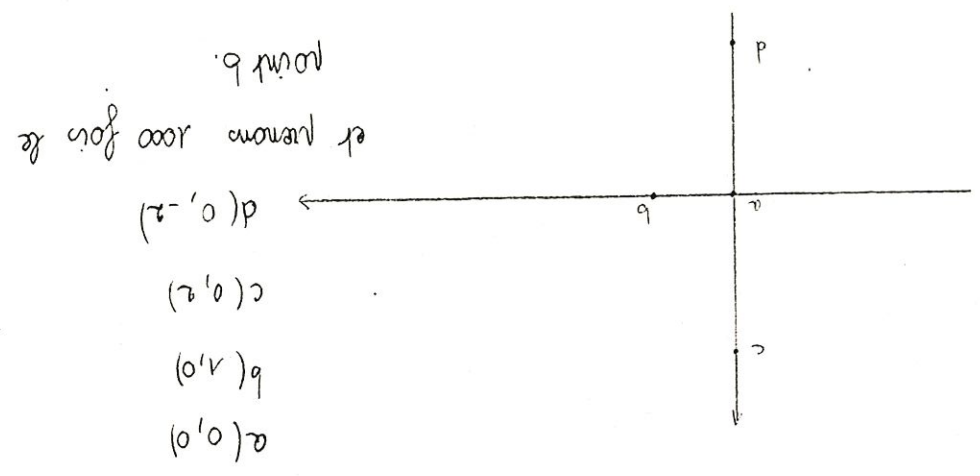 c
a
b
d
a(0,0)
b(1,0)
c(0,2)
d(0,-2)
et prenons 1000 fois le
point b.